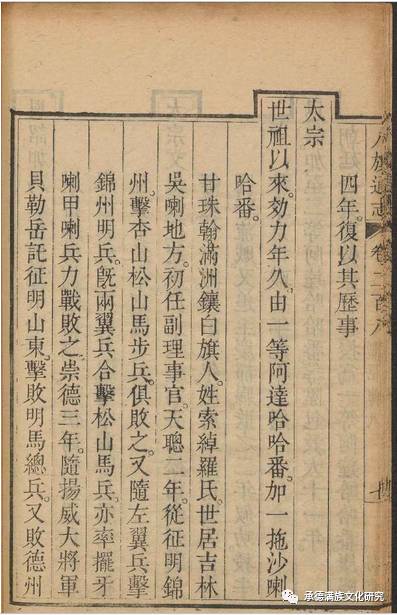 八旗通志 卷二百八
四年。復以其歷事
太宗
世祖以來。効力年久。由一等阿達哈哈番。加一拖沙喇
哈番。
甘珠翰滿洲鑲白旗人。姓索綽羅氏。世居吉林
吳喇地方。初任副理事官。天聰二年。從征明錦
州。擊杏山松山馬步兵。俱敗之。又隨左翼兵。擊
錦州明兵。旣兩翼兵合擊松山馬兵。亦率擺牙
喇甲喇兵力戰敗之。崇德三年。隨揚威大將軍
貝勒岳託征明山東。擊敗明馬總兵。又敗德州
承德满族文化研究